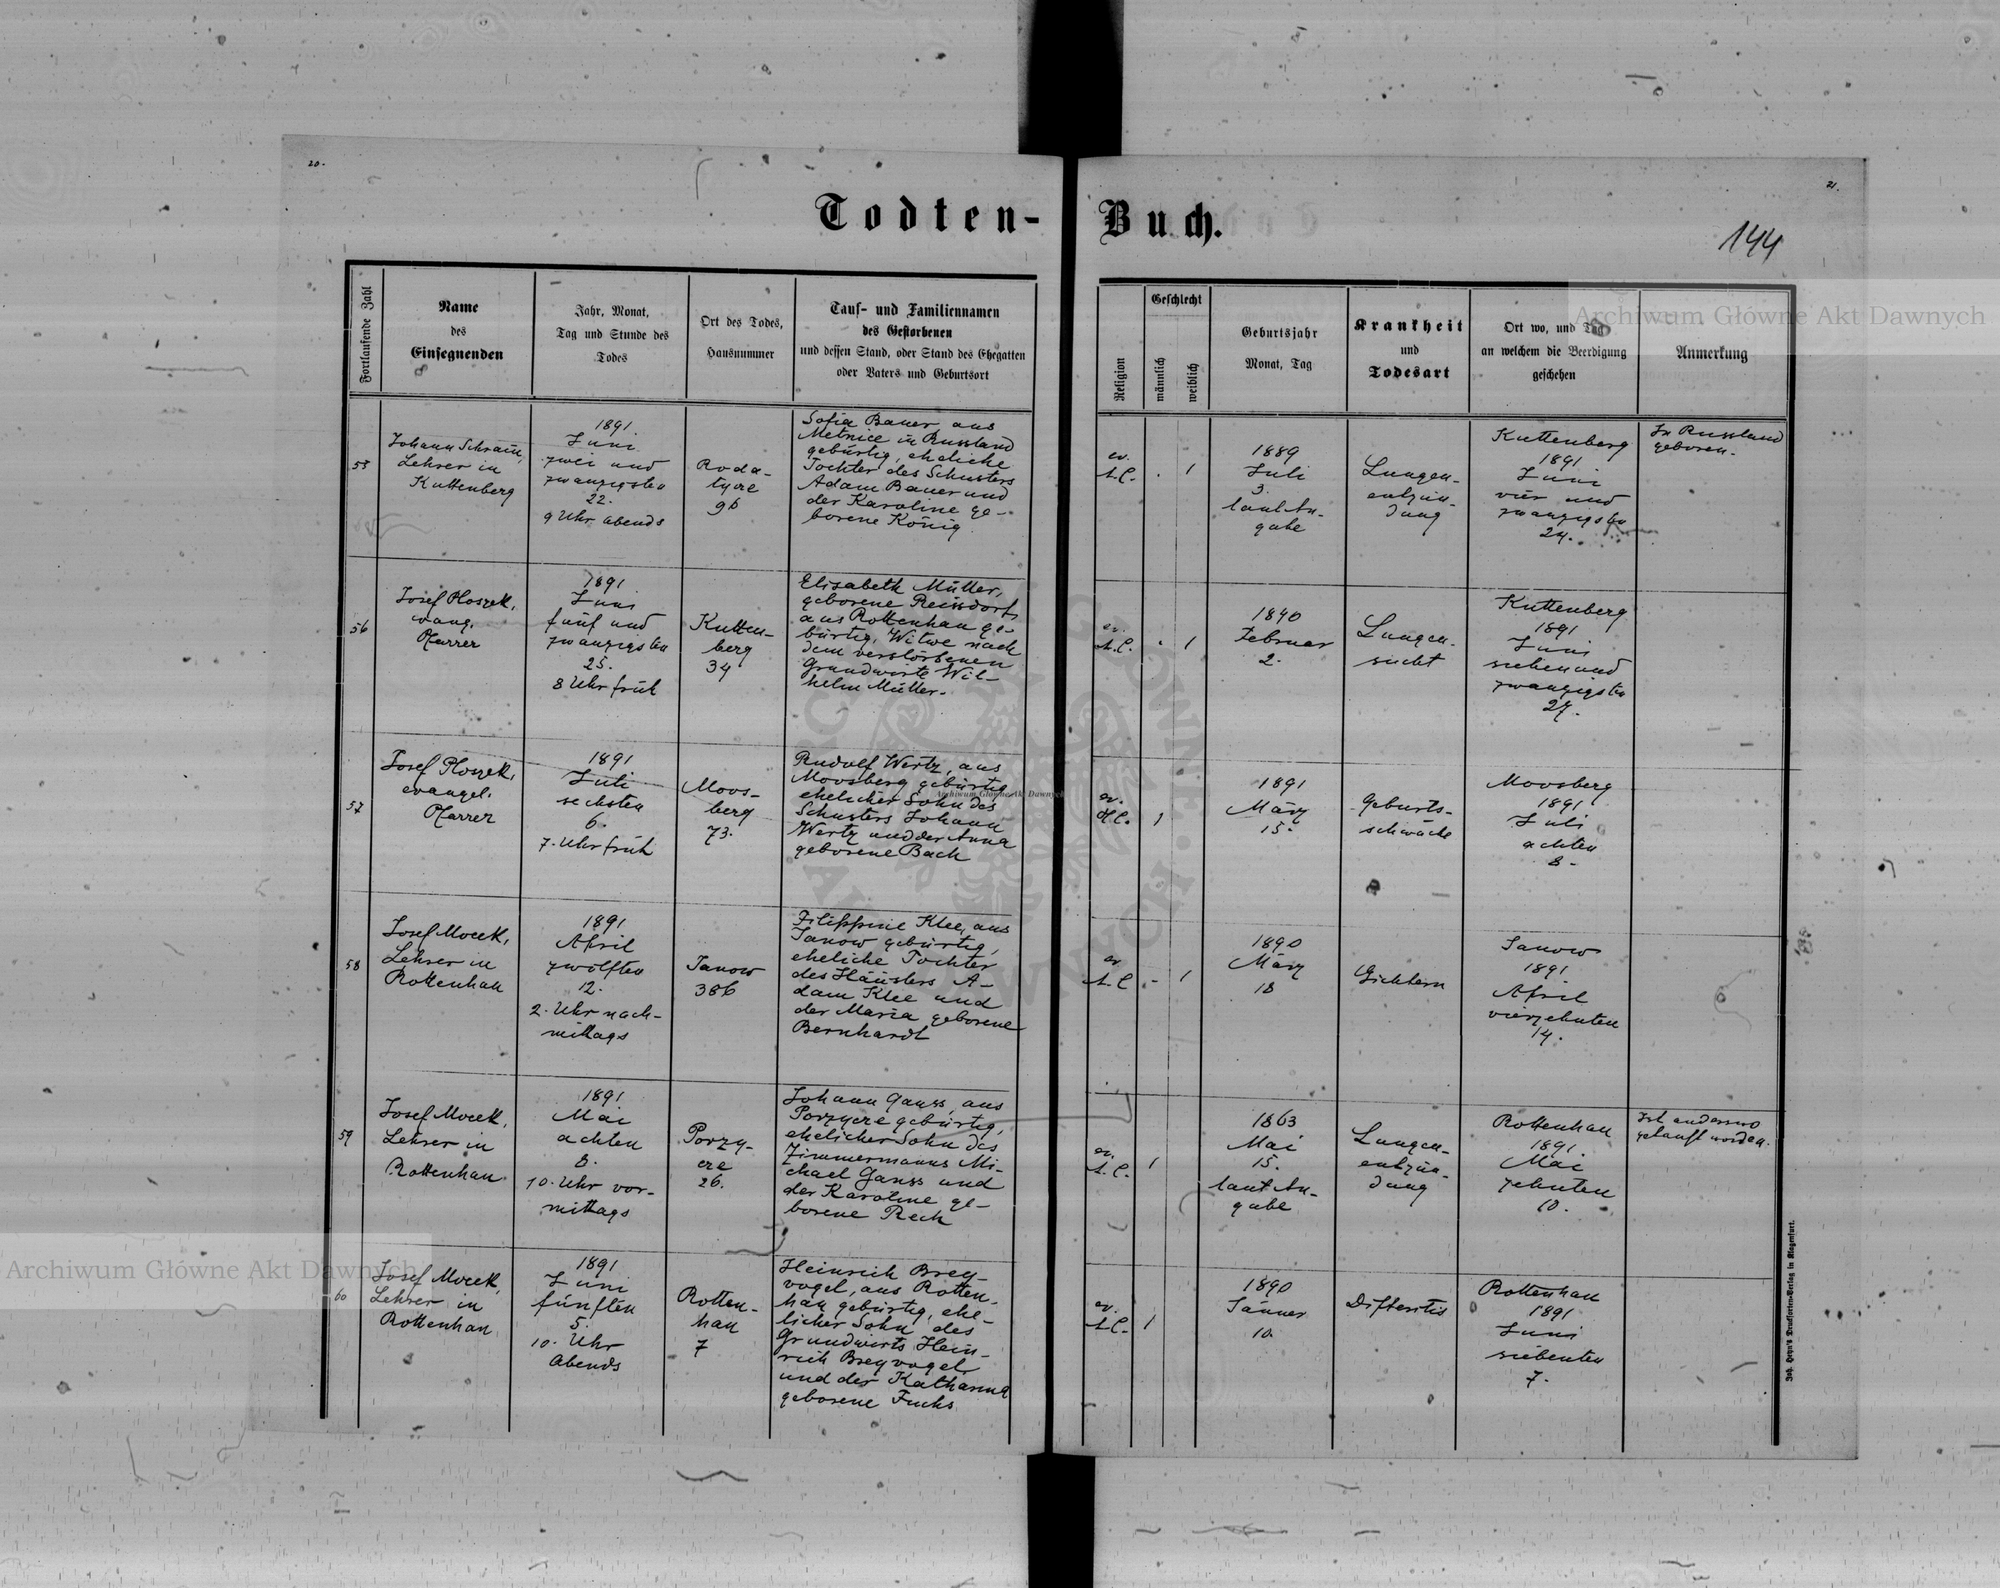 20.
21.
Todten-Buch.
144
Fortlaufende Zahl
Name
des
Einsegnenden
Jahr, Monat,
Tag und Stunde des
Todes
Ort des Todes,
Hausnummer
Tauf- und Familiennamen
des Gestorbenen
und dessen Stand, oder Stand des Ehegatten
oder Vaters und Geburtsort
Religion
Geschlecht
männlich
weiblich
Geburtsjahr
Monat, Tag
Krankheit
und
Todesart
Ort wo, und Tag
an welchem die Beerdigung
geschehen
Anmerkung
55
Johann Schram,
Lehrer in
Kuttenberg
1891
Juni
zwei und
zwanzigsten
22.
9 Uhr abends
Roda-
tycze
96
Sofia Bauer aus
Metnice in Russland
gebürtig, eheliche
Tochter des Schusters
Adam Bauer und
der Karoline ge-
borene König
ev.
A.C.
1
1889
Juli
3.
laut An-
gabe
Lungen-
entzün-
dung
Kuttenberg
1891
Juni
vier und
zwanzigsten
24.
In Russland
geboren.
56
Josef Ploszek,
evang.
Pfarrer
1891
Juni
fünf und
zwanzigsten
25.
8 Uhr früh
Kutten-
berg
34
Elisabeth Müller,
geborene Reissdorf,
aus Rottenhan ge-
bürtig, Witwe nach
dem verstorbenen
Grundwirte Wil-
helm Müller.
ev.
A.C.
1
1840
Februar
2.
Lungen-
sucht
Kuttenberg
1891
Juni
sieben und
zwanzigsten
27.
57
Josef Ploszek,
evangel.
Pfarrer
1891
Juli
sechsten
6.
7. Uhr früh
Moos-
berg
73.
Rudolf Wertz, aus
Moosberg gebürtig
ehelicher Sohn des
Schusters Johann
Wertz und der Anna
geborene Bach
ev.
H.C.
1
1891
März
15.
Geburts-
schwäche
Moosberg
1891
Juli
achten
8.
58
Josef Mocek,
Lehrer in
Rottenhan
1891
April
zwölften
12.
2. Uhr nach-
mittags
Janow
386
Filippine Klee, aus
Janow gebürtig,
eheliche Tochter
des Häuslers A-
dam Klee und
der Maria geborene
Bernhardt
ev.
A.C.
1
1890
März
18
Gichtern
Janow
1891
April
vierzehnten
14.
59
Josef Mocek,
Lehrer in
Rottenhan
1891
Mai
achten
8.
10. Uhr vor-
mittags
Porzy-
cze
26.
Johann Ganss, aus
Porzycze gebürtig,
ehelicher Sohn des
Zimmermanns Mi-
chael Ganss und
der Karoline ge-
borene Rech
ev.
A.C.
1
1863
Mai
15.
laut An-
gabe
Lungen-
entzün-
dung
Rottenhan
1891.
Mai
zehnten
10.
Ist anderswo
getauft worden.
60
Josef Mocek,
Lehrer in
Rottenhan
1891
Juni
fünften
5.
10. Uhr
Abends
Rotten-
han
7
Heinrich Brey-
vogel, aus Rotten-
han gebürtig, ehe-
licher Sohn des
Grundwirts Hein-
rich Breyvogel
und der Katharina
geborene Fuchs
ev.
A.C.
1
1890
Jänner
10.
Difteritis
Rottenhan
1891
Juni
siebenten
7.
Joh. Heyn's Drucksorten-Verlag in Klagenfurt.
Archiwum Główne Akt Dawnych
Archiwum Główne Akt Dawnych
Archiwum Główne Akt Dawnych